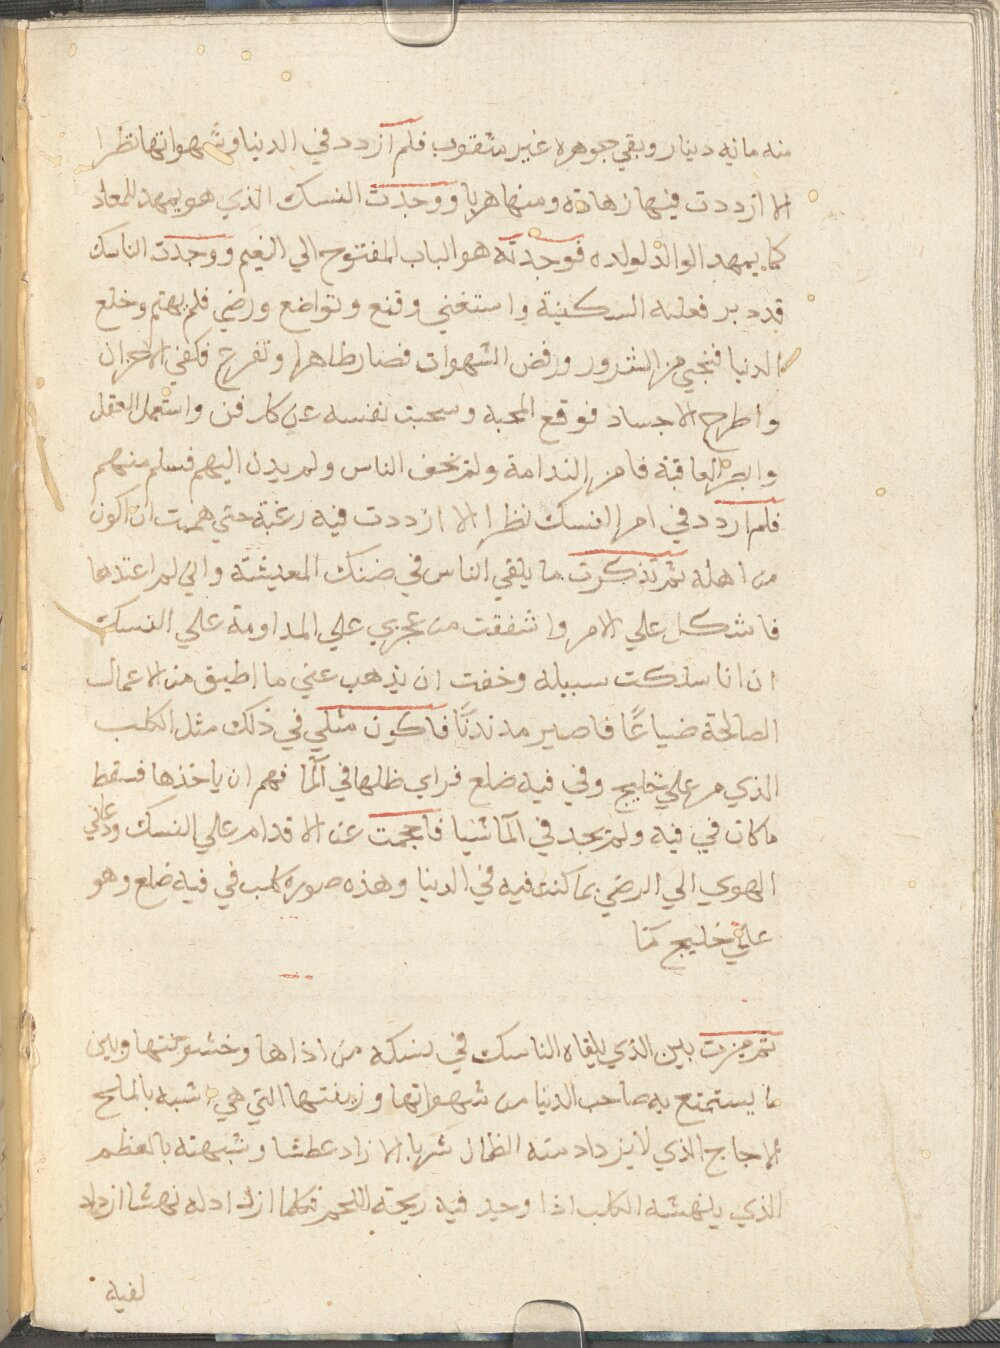 منه مايه دينار وبقي جوهره غير مثقوب فلم آزدد في الدنيا وشهواتها نظرا
الا ازددت فيها زهاده ومنها هربا ووجدت النسك الذي هو يمهد للمعاد
كما يمهد الوالد لولده فوجدته هو الباب المفتوح الي النعيم ووجدت الناسك
قد دبر فعلته السكينة واستغني وقنع وتواضع ورضي فلم يهتم وخلع
الدنيا فنجي من الشرور ورفض الشهوات فصار طاهرا وتفرج فكفي الاحزان
واطرح الاجساد فوقع المحبه وسحبت نفسه عن كل فن واستعمل العقل
وابصر العاقبة فامن الندامة ولم يخف الناس ولم يدن اليهم فسلم منهم
فلم ازدد في امر النسك نظرا الا ازددت فيه رغبة حتي هممت ان اكون
من اهله ثم تذكرت ما يلقي الناس في ضنك المعيشة واني لم اعتدها
فاشكل علي الامر واشفقت من عجزي علي المداومة علي النسك
ان انا سلكت سبيله وخفت ان يذهب عني ما اطيق من الاعمال
الصالحة ضياعًا فاصير مذبذبًا فاكون مثلي في ذلك مثل الكلب
الذي مر علي خليج وفي فيه ضلع فراي ظلها في آلما فهم ان ياخذها فسقط
ما كان في فيه ولم يجد في آلما شيا فاحجمت عن الاقدام علي النسك ودعاني
الهوي الي الرضي بما كنت فيه في الدنيا وهذه صوره كلب في فيه ضلع وهو
علي خليج مَا
ثم ميزت بين الذي يلقاه الناسك في نسكه من اذاها وخشونتها وبين
ما يستمتع به صاحب الدنيا من شهواتها وزينتها التي هي اشبه بالمالح
الاجاج الذي لا يزداد منه الظمان شربا الا زاد عطشا وشبهته بالعظم
الذي ينهشه الكلب اذا وجد فيه ريحة اللحم فكلما ازداد له نهشا ازداد
لفيه